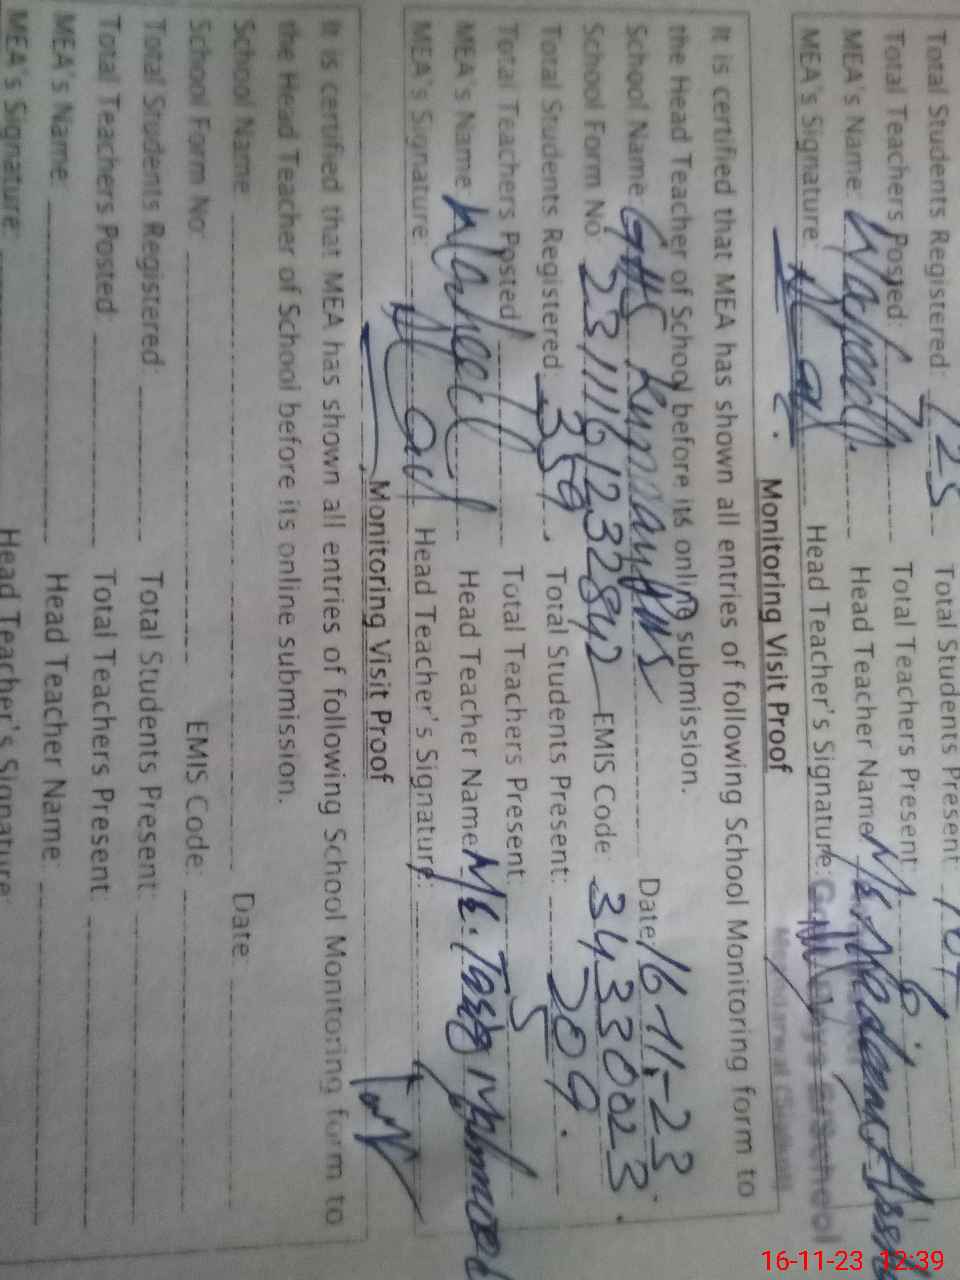 Total Students Registered: 125 Total Students Present:
Total Teachers Posted: 7 Total Teachers Present: 6
MEA's Name: Waheed. Head Teacher Name
MEA's Signature: Head Teacher's Signature:
Monitoring Visit Proof
It is certified that MEA has shown all entries of following School Monitoring form to
the Head Teacher of School before its online submission.
School Name: GHS Date 16-11-23
School Form No: EMIS Code: 34330023
Total Students Registered: 359 Total Students Present: 209
Total Teachers Posted Total Teachers Present: 5
MEA's Name: Waheed Head Teacher Name Mr. Tariq Mehmood
MEA's Signature: Head Teacher's Signature:
Monitoring Visit Proof
It is certified that MEA has shown all entries of following School Monitoring form to
the Head Teacher of School before its online submission.
School Name: Date:
School Form No: EMIS Code:
Total Students Registered: Total Students Present:
Total Teachers Posted: Total Teachers Present:
MEA's Name: Head Teacher Name:
MEA's Signature: Head Teacher's Signature:
16-11-23 12:39